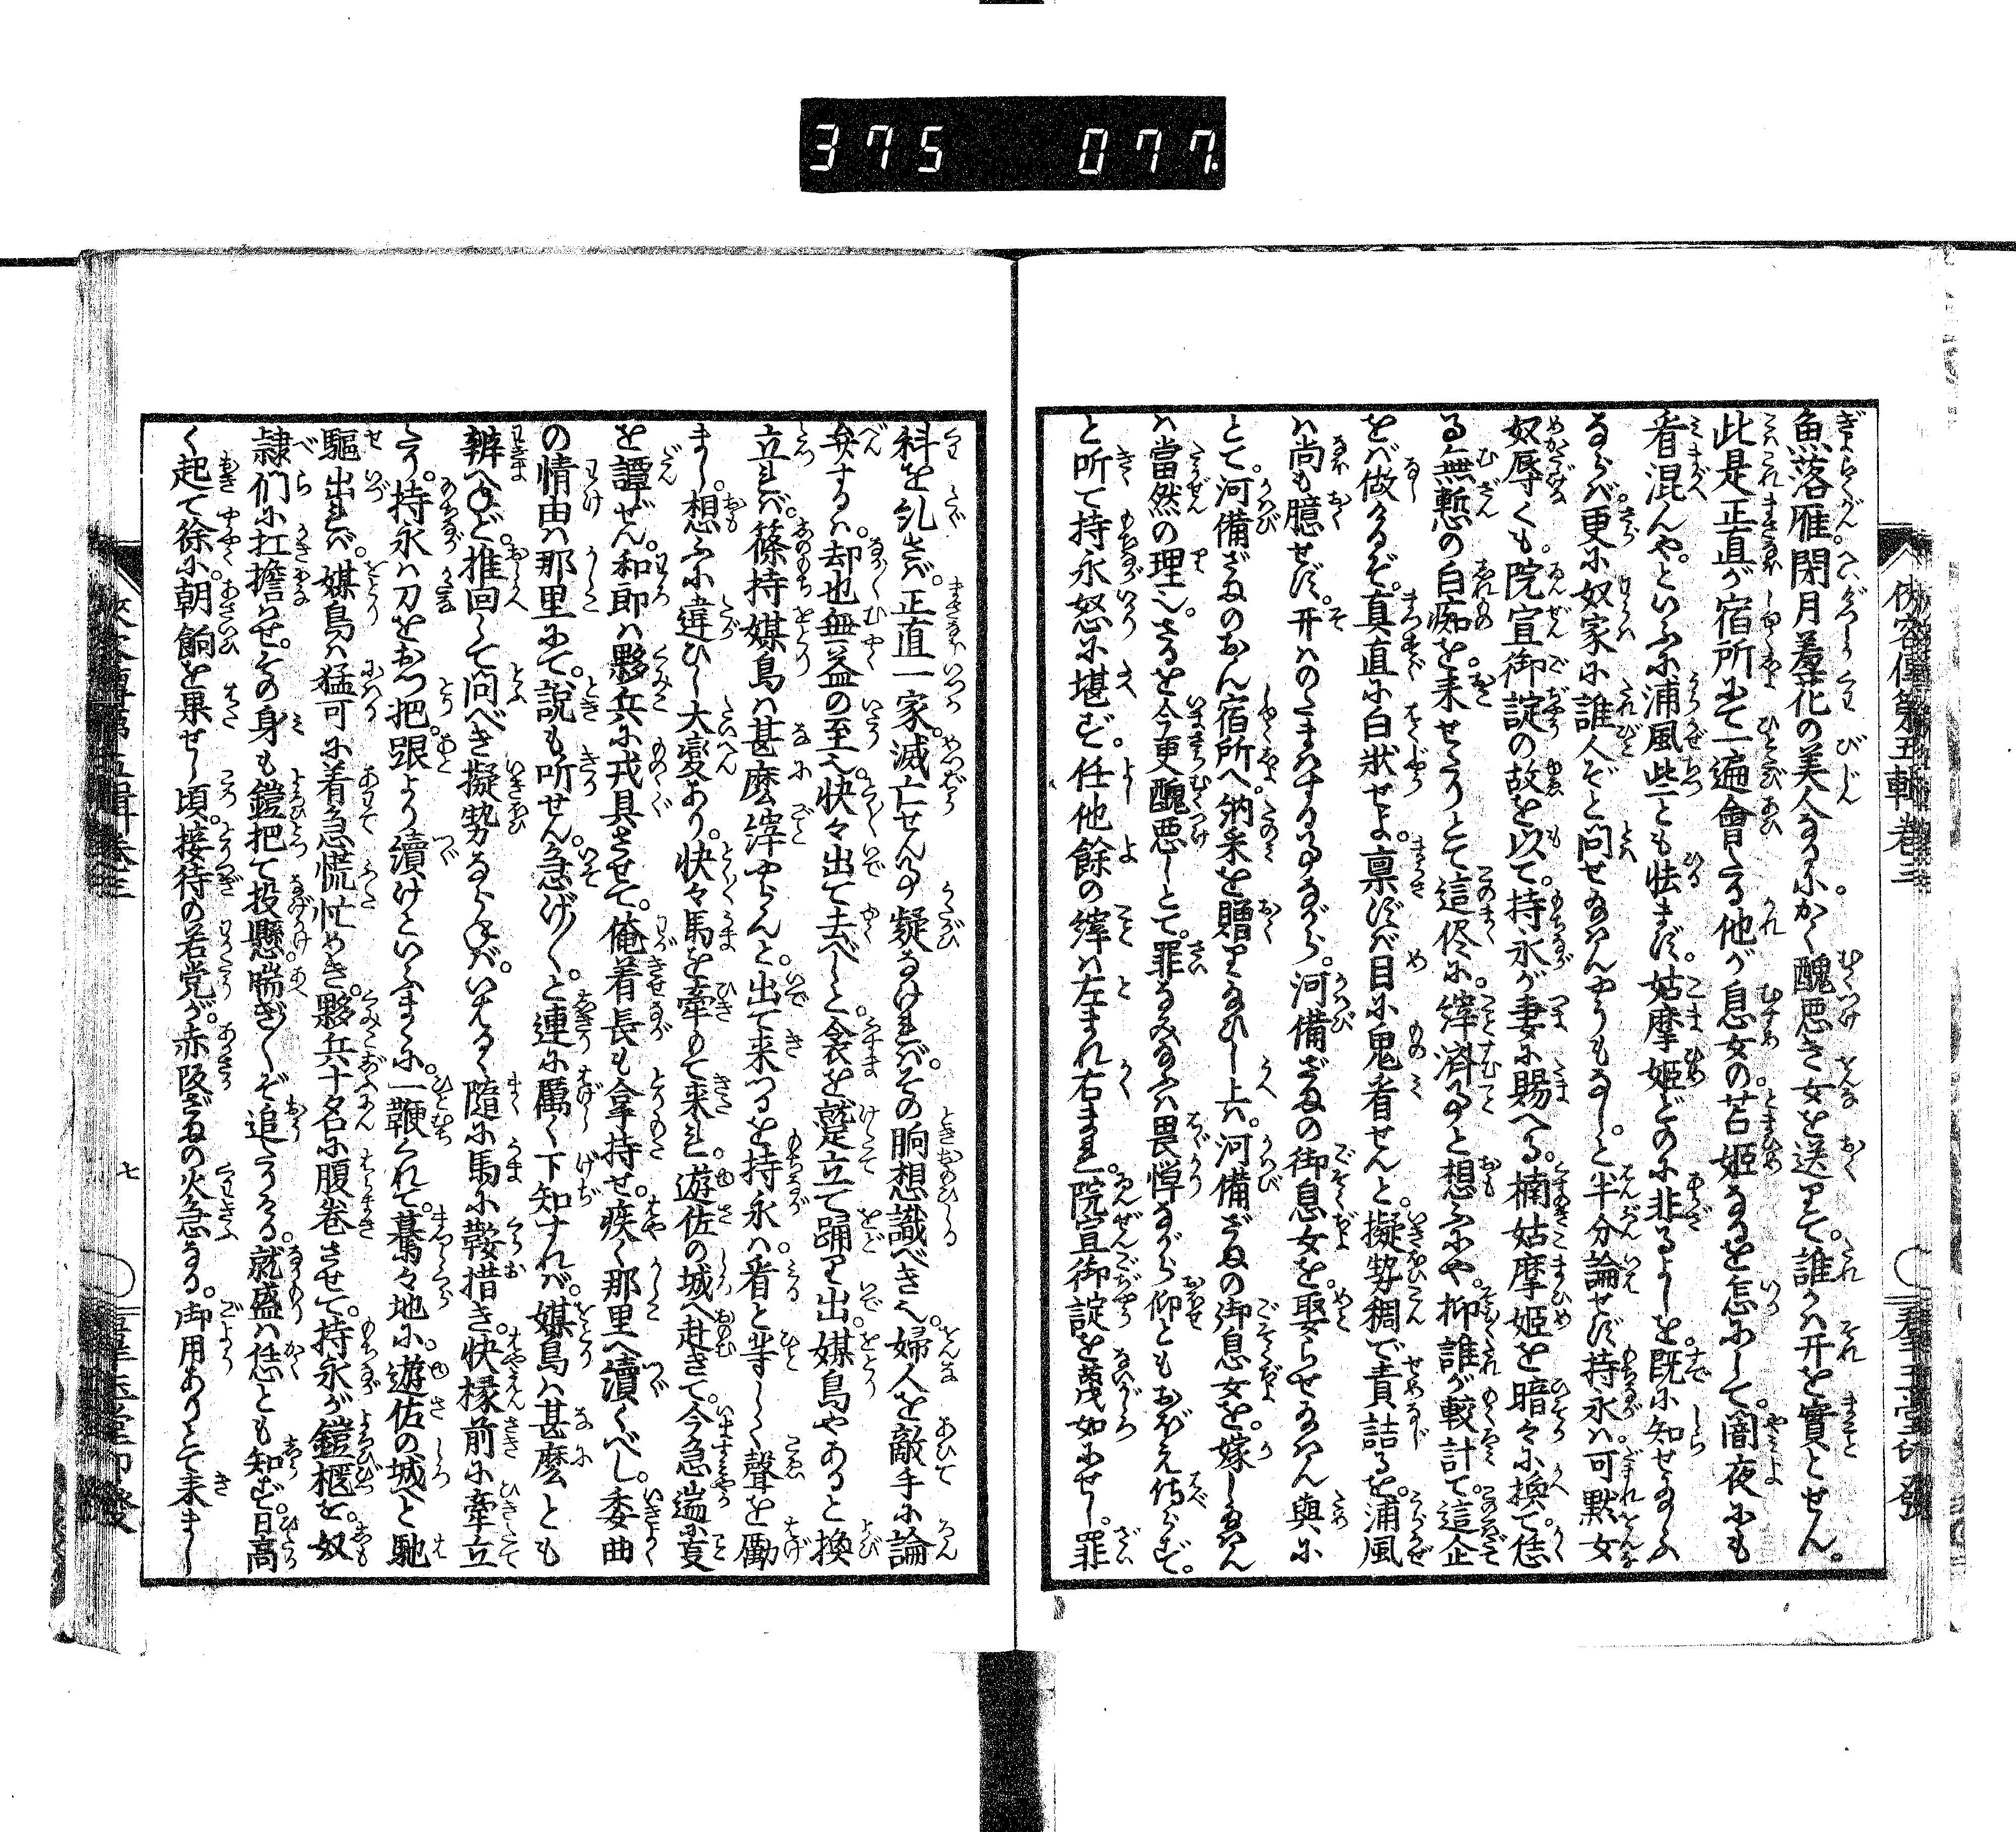 375 077
俠客傳第五輯卷三
魚落雁。閉月羞花の美人なるに。かく醜悪き女を送りて。誰かは开を實とせん。
此是正直が宿所にて一遍會たる他が息女の苫姫なるを怎にして。闇夜にも
看混んや。といふに浦風些とも怯まず。姑摩姫どのに非るよしを。既に知せ給ふ
ならば。更に奴家に誰人ぞと問せ給はんやうもなし。と半分論せず持永は可黙女
奴辱くも。院宣御諚の故を以て。持永が妻に賜へる。楠姑摩姫を暗々に換て恁
る無慙の白痴を。来せたりとて這侭に。縡済ると想ふにや。抑誰が較計て。這企
をば做たるぞ。真直に白状せよ。禀ずば目に鬼看せんと。擬勢稠て責詰るを。浦風
は尚も臆せず。开はのたまはする事ながら。河備ざねの御息女を。娶らせ給はん與に
とて。河備ざねのおん宿所へ。納采を贈り給ひし上は。河備ざねの御息女を。嫁し給はん
は當然の理也。さるを今更醜悪しとて。罪なみ給ふは畏憚ながら仰ともおぼえ侍らず。
と听て持永怒に堪ず。任他餘の縡は左まれ右まれ。院宣御諚を蔑如にせし。罪
科を糺さば。正直一家。滅亡せん事疑なければ。その晌想識べき也。婦人を敵手に論
弁するは。却也無益の至也。快々出て去べしと。衾を蹴立て踊り出。媒鳥やあると換
立れば。篠持媒鳥は甚麼縡やらんと。出て来つるを持永は。看と等しく聲を勵
まし。想ふに違ひし大變あり。快々馬を牽もて来よ。遊佐の城へ赴きて。今急端に夏
を譚ぜん。和郎は夥兵に戎具させて。俺着長も拿持せ。疾く那里へ續くべし。委曲
の情由は那里にて。説も听せん。急げ〳〵。と連に厲く下知すれば。媒鳥は甚麼とも
辧へねど。推回して問べき擬勢ならねば。いはるゝ隨に馬に鞍措き。快椽前に牽立
たり。持永は刀をおつ把。跟より續けといふまゝに。一鞭くれて。驀々地に。遊佐の城へと馳
驅出れば。媒鳥は猛可に着急慌忙めき。夥兵十名に腹巻させて。持永が鎧櫃を。奴
隷們に扛擔はせ。その身も鎧把て投懸。喘ぎ〳〵ぞ追たりける。就盛は恁とも知ず。日高
く起て徐に。朝餉を果せし頃。接待の若党が。赤阪ざねの火急なる。御用ありとて来まし
七